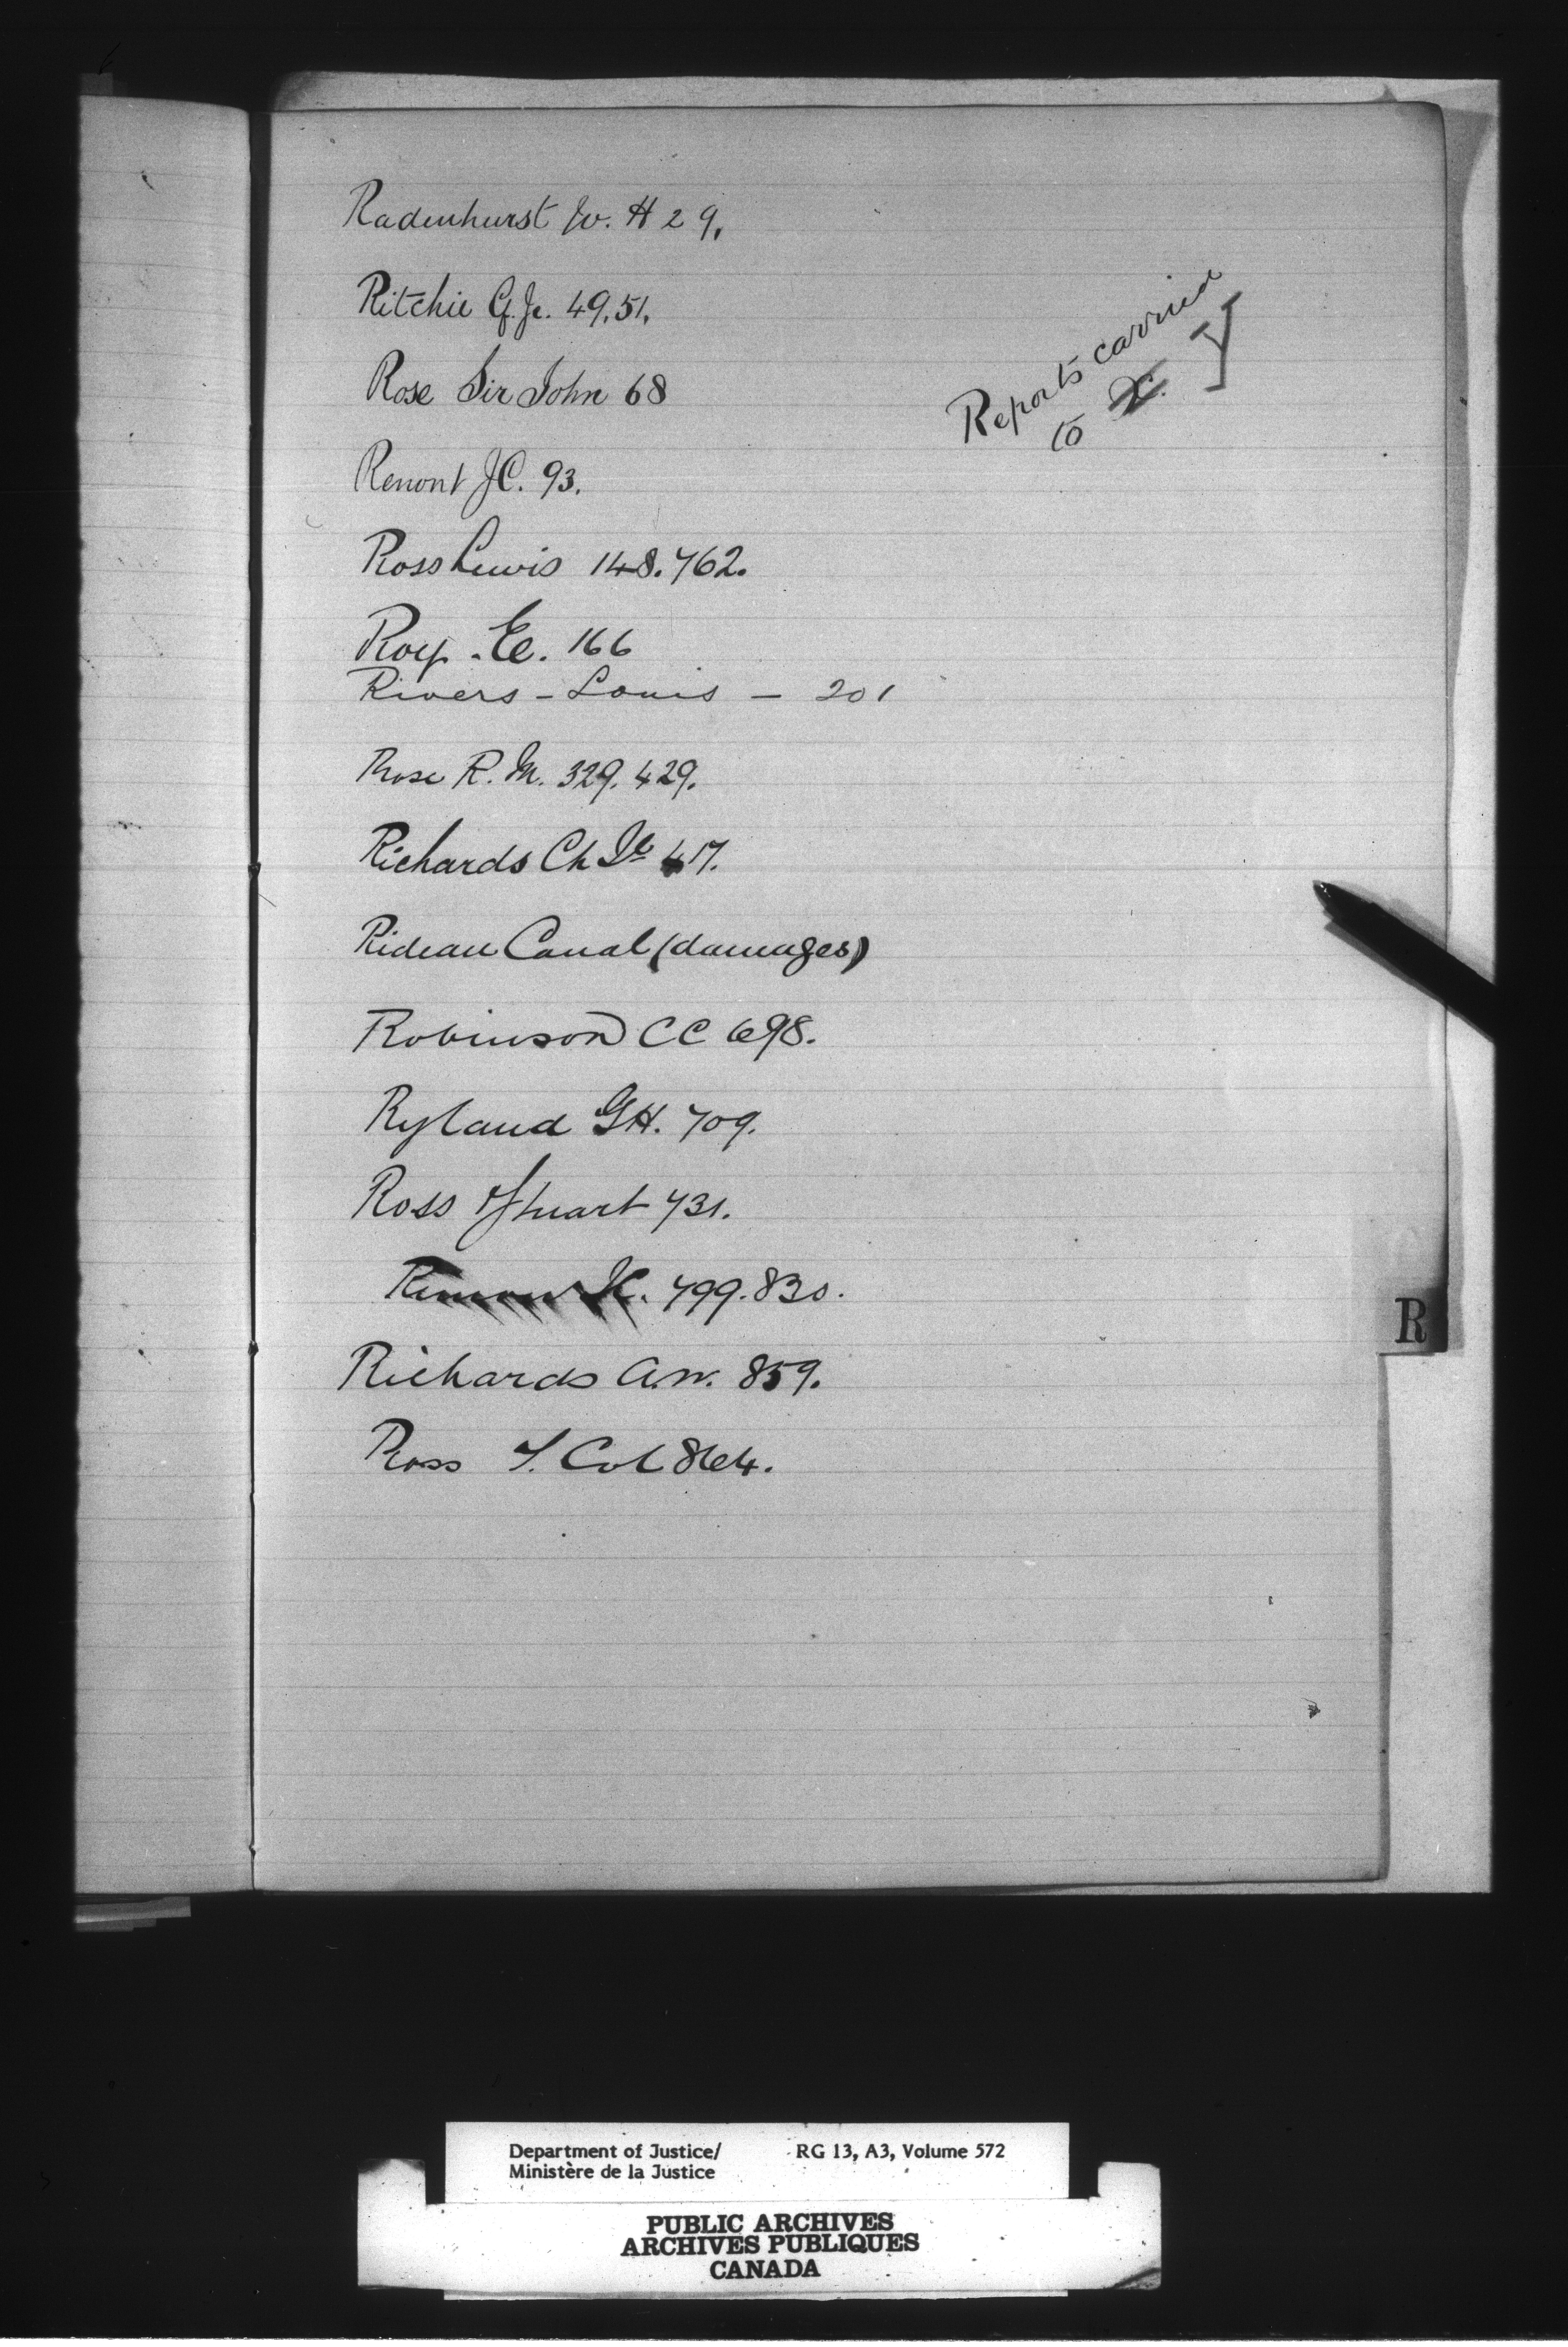 Radenhurst W. H 29.
Ritchie C. Je. 49.51.
Rose Sir John 68
Reports carried
to X. Y
Remont JC. 93.
Ross Lewis 148.762.
Roy. E. 166
Rivers - Louis - 201
Rose R. M. 329. 429.
Richards Ch Je 417.
Rideau Canal (damages)
Robinson CC 698.
Ryland GH. 709.
Ross Stuart 731.
799.830.
Richards A.W. 859.
Ross T. Col 864.
R
Department of Justice/ RG 13, A3, Volume 572
Ministère de la Justice
PUBLIC ARCHIVES
ARCHIVES PUBLIQUES
CANADA